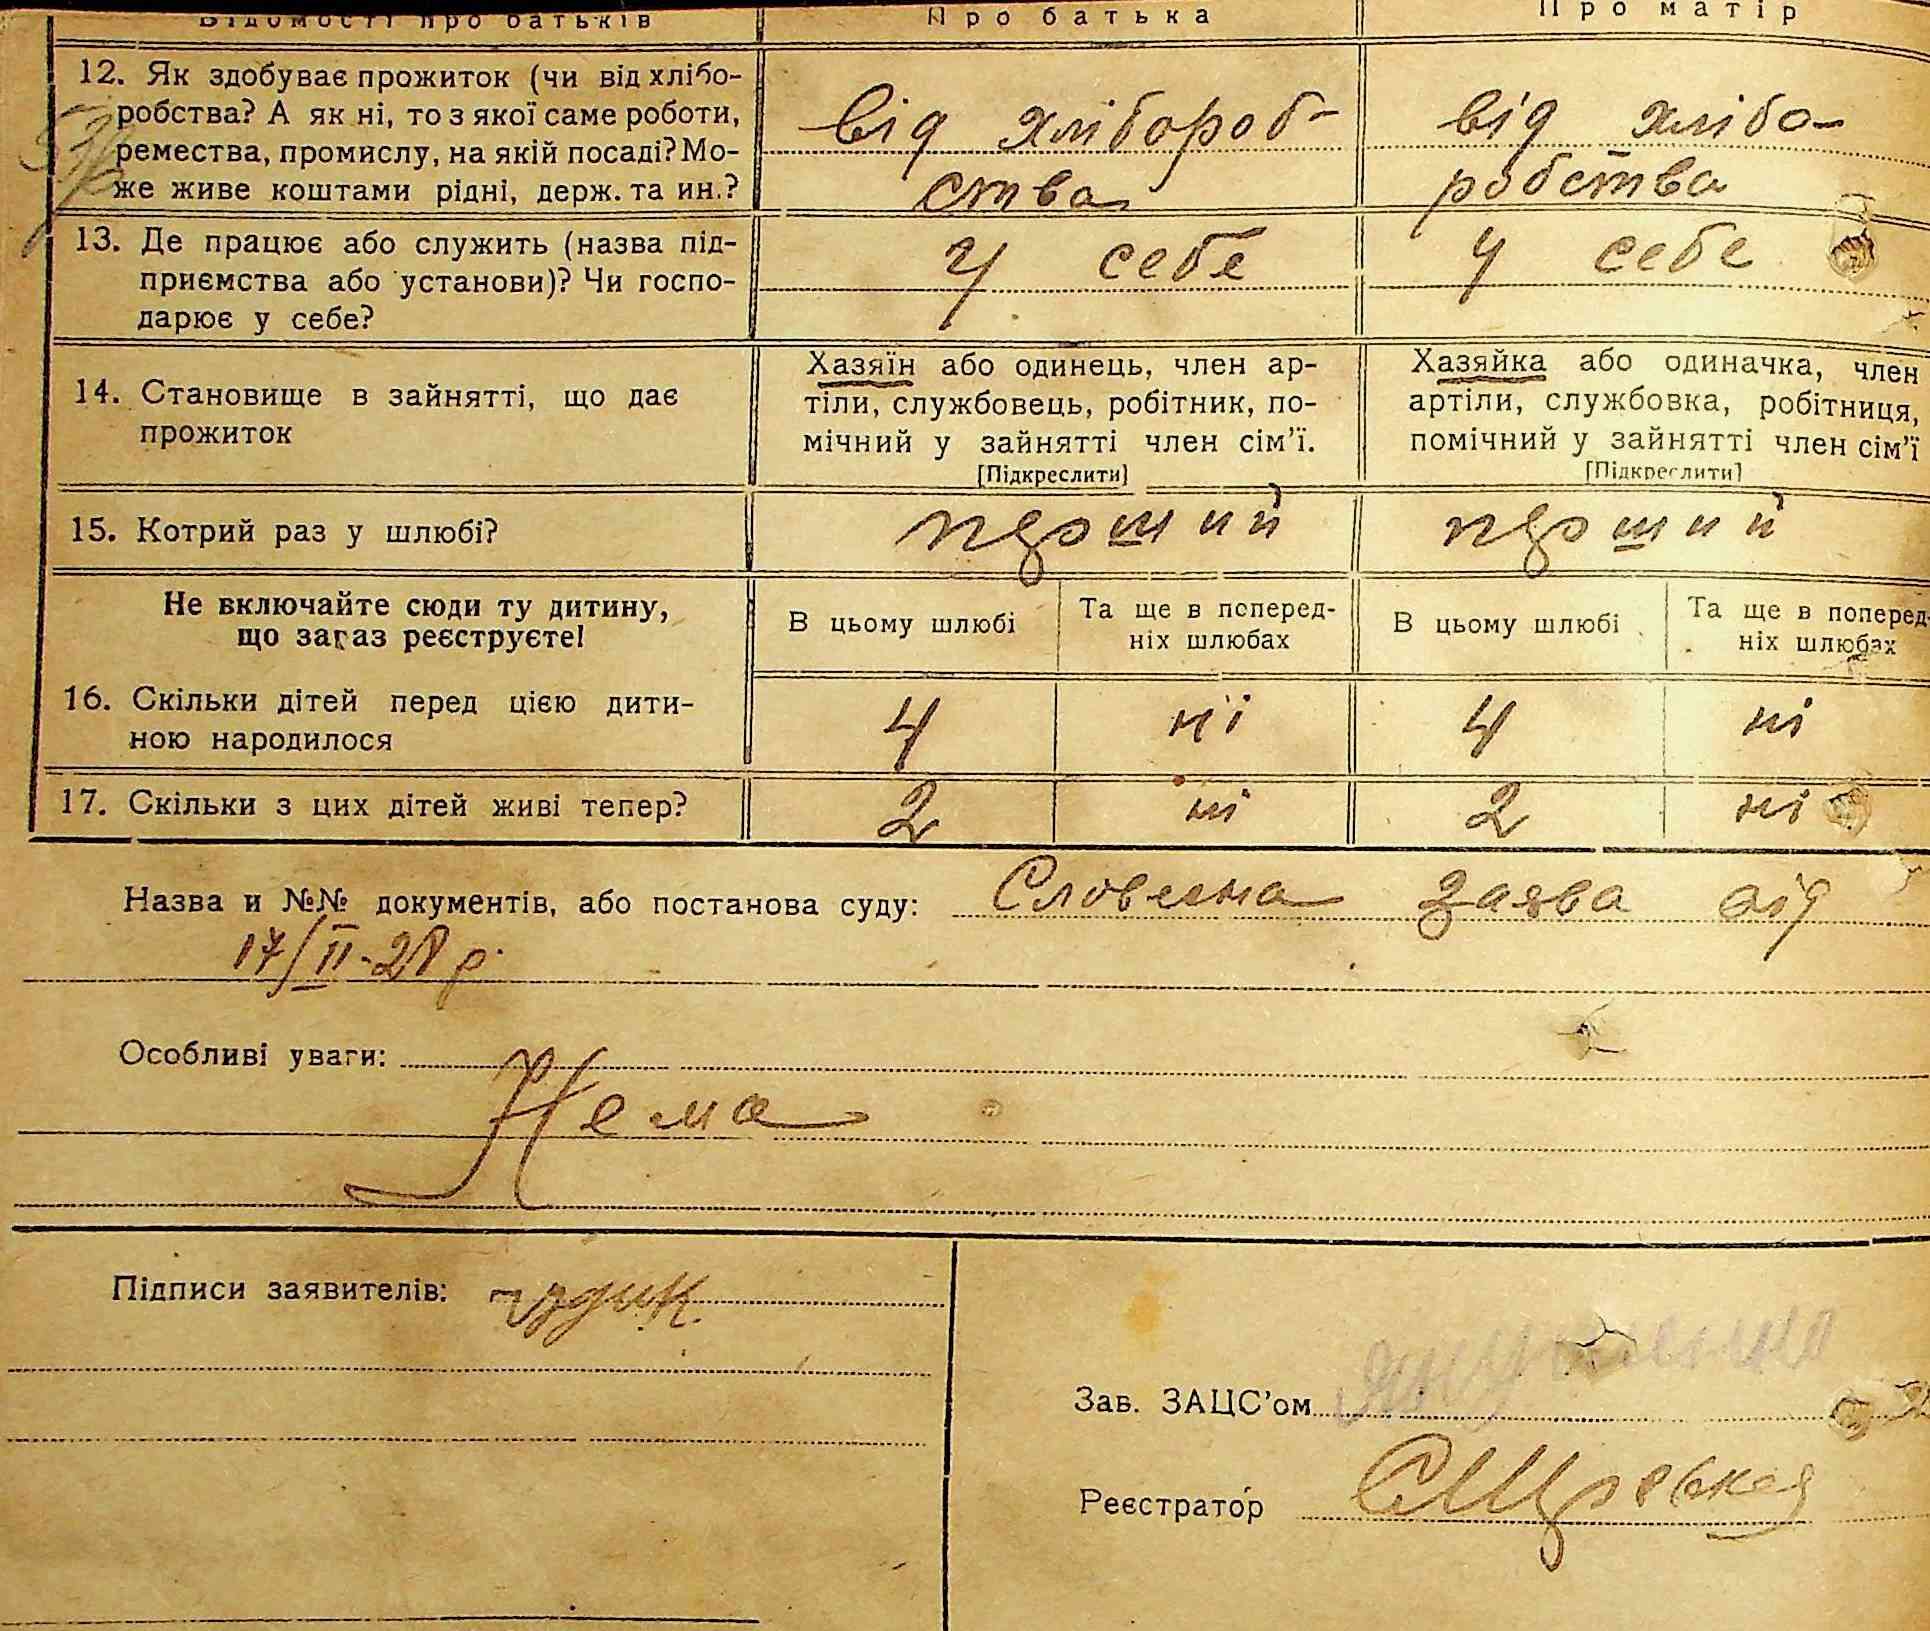 Відомості про батьків Про батька Про матір
12. Як здобуває прожиток (чи від хлібо-
робства? А як ні, то з якої саме роботи,
ремества, промислу, на якій посаді? Мо-
же живе коштами рідні, держ. та ин.?
від хлібороб-
ства
від хлібо-
робства
13. Де працює або служить (назва під-
приємства або установи)? Чи госпо-
дарює у себе?
У себе
У себе
14. Становище в зайнятті, що дає
прожиток
Хазяїн або одинець, член ар-
тіли, службовець, робітник, по-
мічний у зайнятті член сім'ї.
[Підкреслити]
Хазяйка або одиначка, член
артіли, службовка, робітниця,
помічний у зайнятті член сім'ї
[Підкреслити]
15. Котрий раз у шлюбі? перший перший
Не включайте сюди ту дитину,
що зараз реєструєте!
В цьому шлюбі
Та ще в поперед-
ніх шлюбах
В цьому шлюбі
Та ще в поперед-
ніх шлюбах
16. Скільки дітей перед цією дити-
ною народилося
4 ні 4 ні
17. Скільки з цих дітей живі тепер? 2 ні 2 ні
Назва и №№ документів, або постанова суду: Словесна заява від
17/II-28 р.
Особливі уваги:
Нема
Підписи заявителів:
Зав. ЗАЦС'ом
Реєстратор